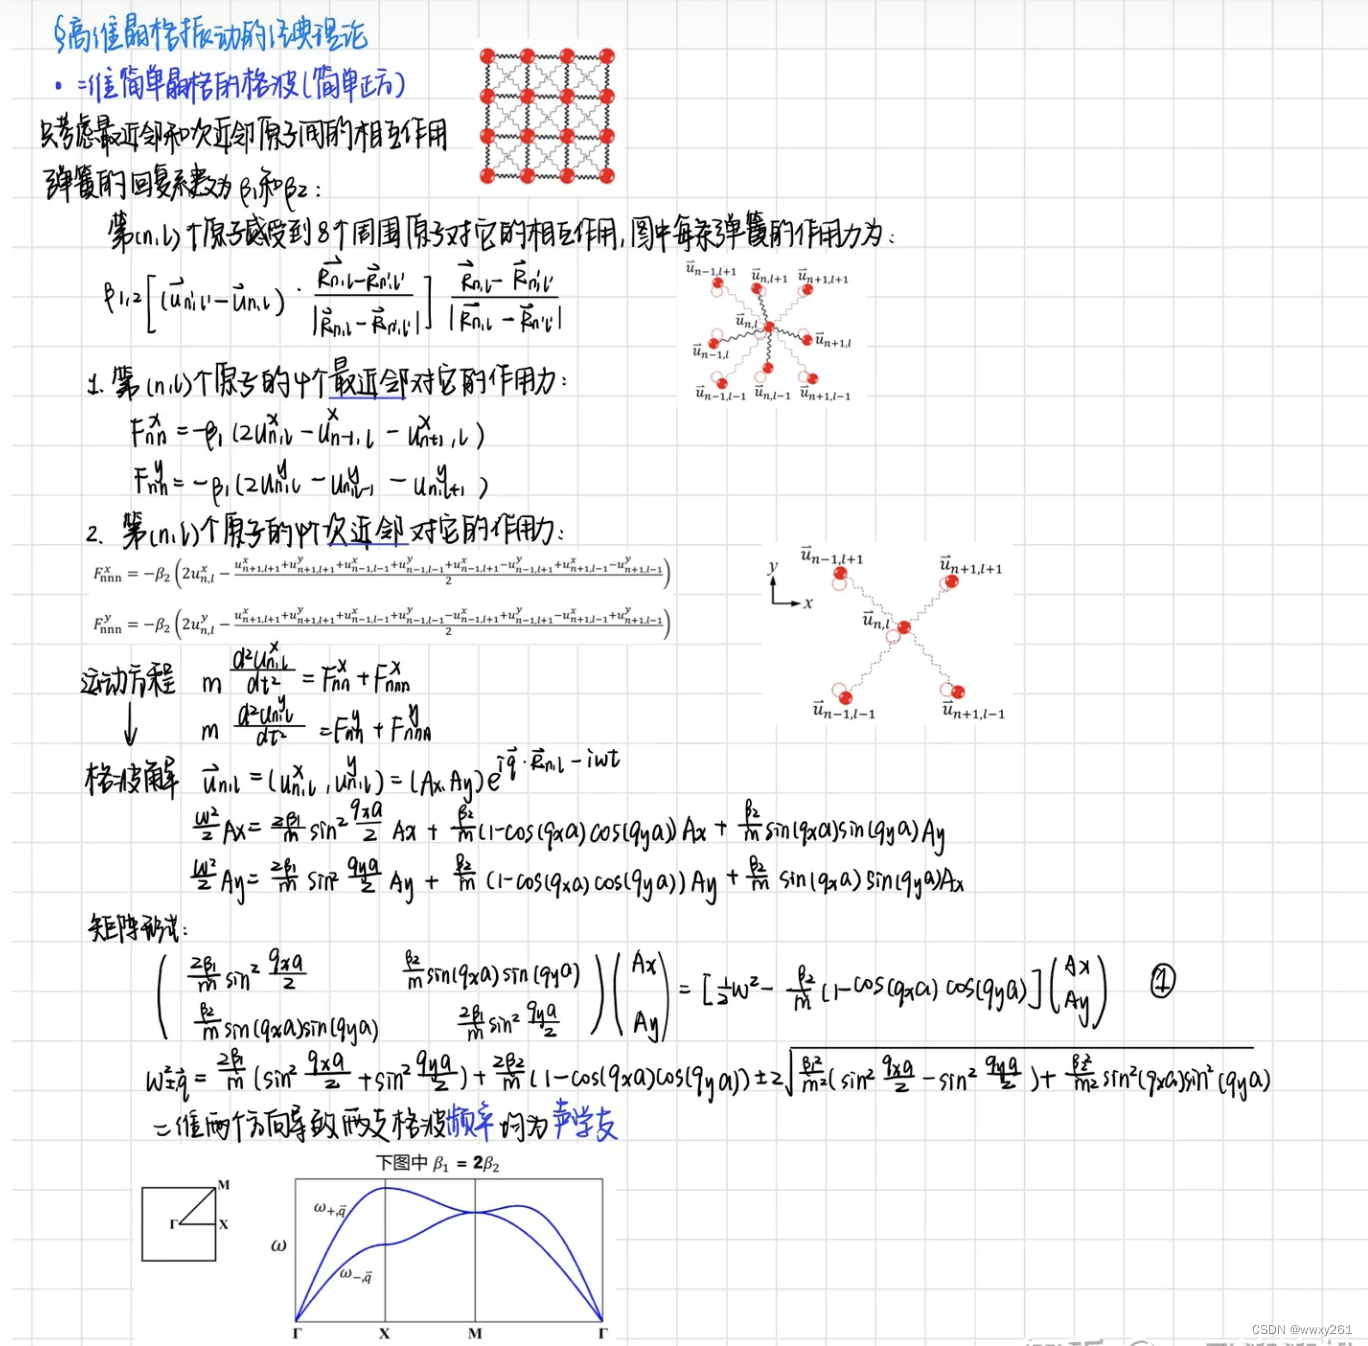 §高维晶格振动的经典理论
· 二维简单晶格的格波(简单正方)
只考虑最近邻和次近邻原子间的相互作用
弹簧的回复系数为 β₁和β₂:
第(n,l)个原子感受到8个周围原子对它的相互作用,图中每条弹簧的作用力为:
β₁,₂ [(u⃗n',l' − u⃗n,l) · (R⃗n,l − R⃗n',l')/|R⃗n,l − R⃗n',l'|] (R⃗n,l − R⃗n',l')/|R⃗n,l − R⃗n',l'|
u⃗n−1,l+1 u⃗n,l+1 u⃗n+1,l+1
u⃗n,l
u⃗n−1,l u⃗n+1,l
u⃗n−1,l−1 u⃗n,l−1 u⃗n+1,l−1
1. 第(n,l)个原子的4个最近邻对它的作用力:
F^x_nn = −β₁(2u^x_n,l − u^x_n−1,l − u^x_n+1,l)
F^y_nn = −β₁(2u^y_n,l − u^y_n,l−1 − u^y_n,l+1)
2. 第(n,l)个原子的4个次近邻对它的作用力:
F^x_nnn = −β₂(2u^x_n,l − (u^x_n+1,l+1+u^y_n+1,l+1+u^x_n−1,l−1+u^y_n−1,l−1+u^x_n−1,l+1−u^y_n−1,l+1+u^x_n+1,l−1−u^y_n+1,l−1)/2)
F^y_nnn = −β₂(2u^y_n,l − (u^x_n+1,l+1+u^y_n+1,l+1+u^x_n−1,l−1+u^y_n−1,l−1−u^x_n−1,l+1+u^y_n−1,l+1−u^x_n+1,l−1+u^y_n+1,l−1)/2)
y
x
u⃗n−1,l+1 u⃗n+1,l+1
u⃗n,l
u⃗n−1,l−1 u⃗n+1,l−1
运动方程 m d²u^x_n,l/dt² = F^x_nn + F^x_nnn
↓ m d²u^y_n,l/dt² = F^y_nn + F^y_nnn
格波解 u⃗n,l = (u^x_n,l, u^y_n,l) = (Ax, Ay)e^(iq⃗·R⃗n,l − iωt)
ω²/2 Ax = 2β₁/m sin² qxa/2 Ax + β₂/m (1−cos(qxa)cos(qya))Ax + β₂/m sin(qxa)sin(qya)Ay
ω²/2 Ay = 2β₁/m sin² qya/2 Ay + β₂/m (1−cos(qxa)cos(qya))Ay + β₂/m sin(qxa)sin(qya)Ax
矩阵形式:
( 2β₁/m sin² qxa/2 β₂/m sin(qxa)sin(qya) ) (Ax) = [½ω² − β₂/m (1−cos(qxa)cos(qya)] (Ax) ①
( β₂/m sin(qxa)sin(qya) 2β₁/m sin² qya/2 ) (Ay) (Ay)
ω²±,q⃗ = 2β₁/m (sin² qxa/2 + sin² qya/2) + 2β₂/m (1−cos(qxa)cos(qya)) ± 2√(β₁²/m² (sin² qxa/2 − sin² qya/2) + β₂²/m² sin²(qxa)sin²(qya))
二维两个方向导致两支格波频率均为声学支
下图中 β₁ = 2β₂
M
Γ X
ω₊,q⃗
ω
ω₋,q⃗
Γ X M Γ
CSDN @wwxy261